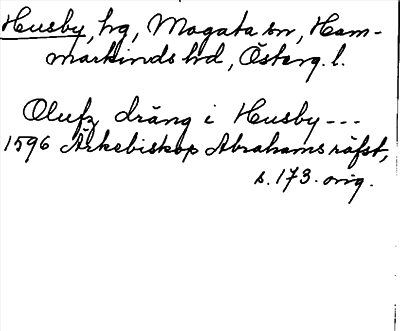 Husby, hg, Mogata sn, Ham-
markinds hd, Österg. l.
Olufz dräng i Husby ---
1596 Ärkebiskop Abrahams räfst,
s. 173. orig.